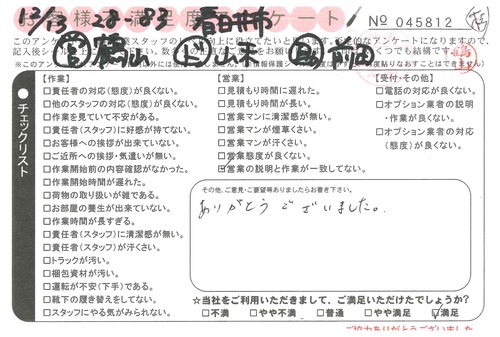 お客様満足度アンケート!
No 045812
13/13 28-83 春日井市
営 鶴山 山本 前田
チェックリスト
【作業】
□責任者の対応(態度)が良くない。
□他のスタッフの対応(態度)が良くない。
□作業を見ていて不安がある。
□責任者(スタッフ)に好感が持てない。
□お客様への挨拶が出来ていない。
□ご近所への挨拶・気遣いが無い。
□作業開始前の内容確認がなかった。
□作業開始時間が遅れた。
□荷物の取り扱いが雑である。
□お部屋の養生が出来ていない。
□作業時間が長すぎる。
□責任者(スタッフ)に清潔感が無い。
□責任者(スタッフ)が汗くさい。
□トラックが汚い。
□梱包資材が汚い。
□運転が不安(下手)である。
□靴下の履き替えをしてない。
□スタッフにやる気がみられない。
【営業】
□見積もり時間に遅れた。
□見積もり時間が長い。
□営業マンに清潔感が無い。
□営業マンが煙草くさい。
□営業マンが汗くさい。
□営業態度が良くない。
□営業の説明と作業が一致してない。
【受付・その他】
□電話の対応が良くない。
□オプション業者の説明
・作業が良くない。
□オプション業者の対応
(態度)が良くない。
その他、ご意見・ご要望等ありましたらお書き下さい。
ありがとうございました。
☆当社をご利用いただきまして、ご満足いただけたでしょうか?
□不満 □やや不満 □普通 □やや満足 ☑満足
ご協力ありがとうございました